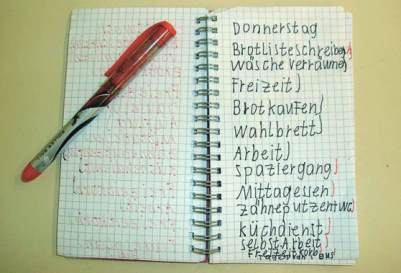 Donnerstag
Brotlisteschreiben
wäsche verräumen
Freizeit
Brotkaufen
wahlbrett
Arbeit
spaziergang
Mittagessen
zähneputzen
küchdienst
selbstArbeit